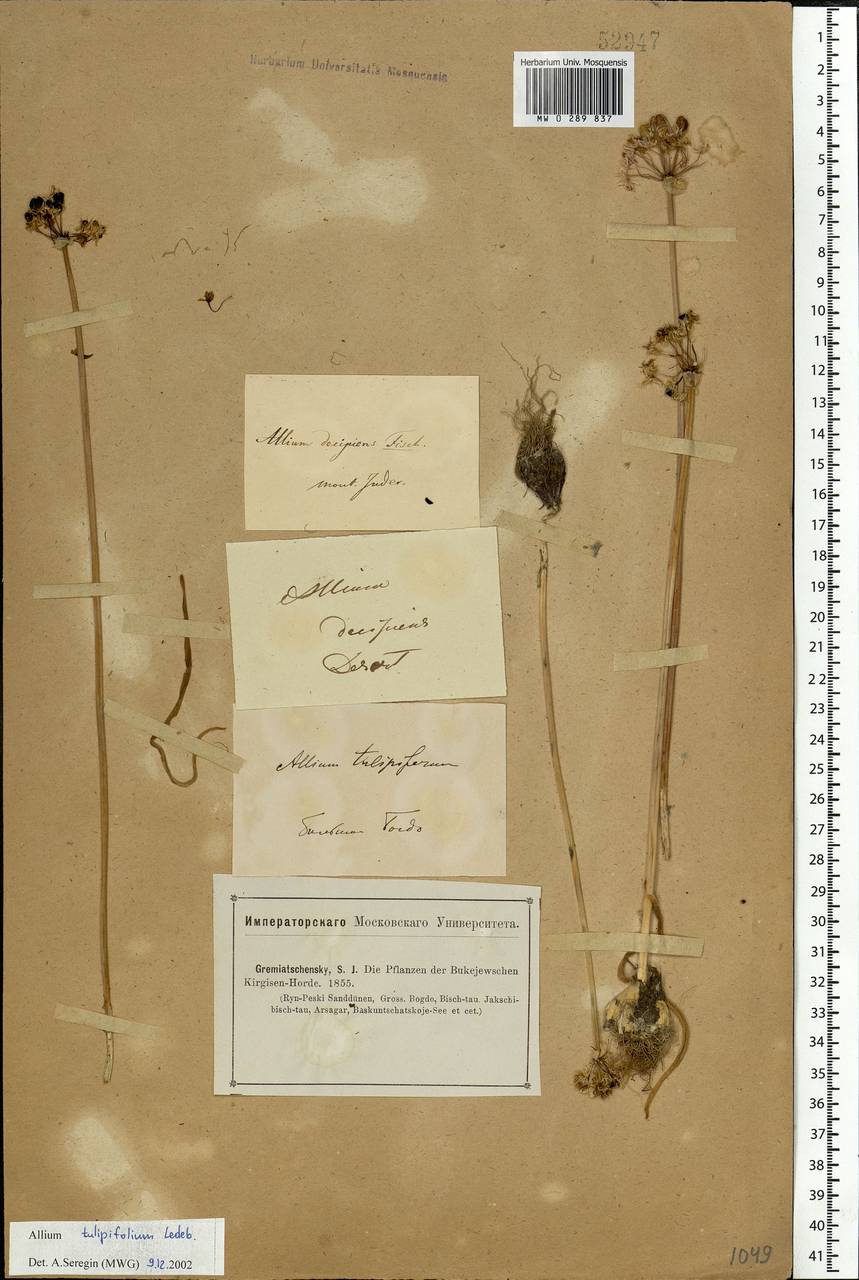 52947
Herbarium Universitatis Mosquensis
Herbarium Univ. Mosquensis
MW 0 289 837
Allium decipiens Fisch.
mont. Inder.
Allium
decipiens
Allium tulipiferum
Императорскаго Московскаго Университета.
Gremiatschensky, S. J. Die Pflanzen der Bukejewschen
Kirgisen-Horde. 1855.
(Ryn-Peski Sanddünen, Gross. Bogdo, Bisch-tau. Jakschi-
bisch-tau, Arsagar, Baskuntschatskoje-See et cet.)
Allium tulipifolium Ledeb.
Det. A.Seregin (MWG) 9.12.2002
1049
1
2
3
4
5
6
7
8
9
10
11
12
13
14
15
16
17
18
19
20
21
22
23
24
25
26
27
28
29
30
31
32
33
34
35
36
37
38
39
40
41